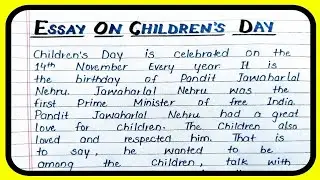 ESSAY ON CHILDREN'S DAY
Children's Day is celebrated on the
14th November Every year It is
the birthday of Pandit Jawaharlal
Nehru. Jawaharlal Nehru was the
first Prime Minister of free India.
Pandit Jawaharlal Nehru had a great
love for children. The Children also
loved and respected him. That is
to say, he wanted to be
among the children, talk with